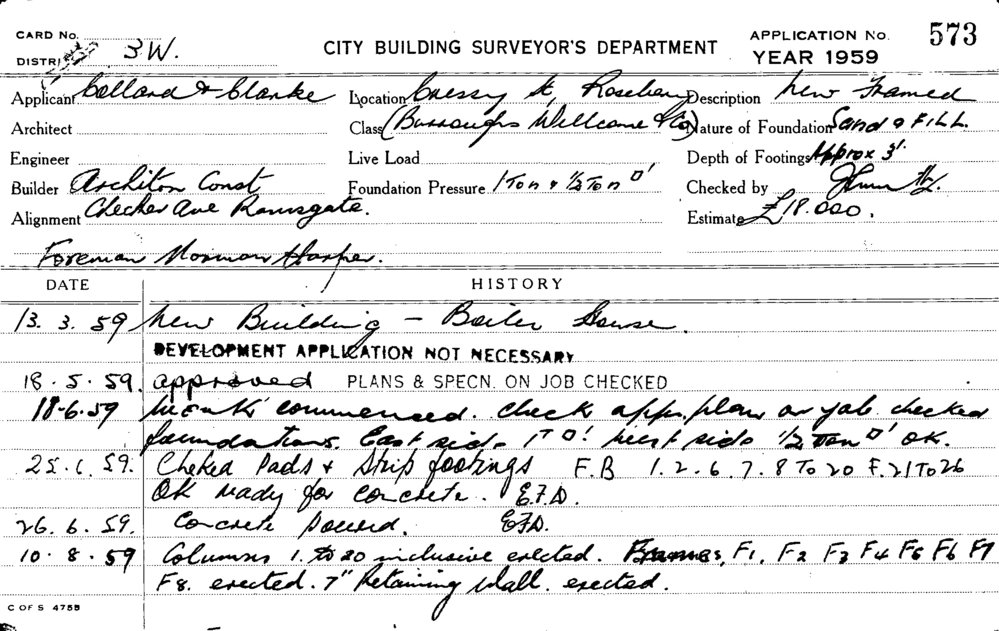 CARD No.
DISTRI 3W.
CITY BUILDING SURVEYOR'S DEPARTMENT
APPLICATION No. 573
YEAR 1959
Applicant Collard & Clarke Location Cressy St, Rosebery Description New Framed
Architect Class (Burroughs Wellcome & Co) Nature of Foundation Sand & FILL
Engineer Live Load Depth of Footings Approx 3'.
Builder Architon Const Foundation Pressure 1 Ton & ½ Ton □' Checked by
Alignment Checker Ave Ramsgate. Estimate £18.000.
Foreman Norman Harper.
DATE HISTORY
13. 3. 59 New Building – Boiler House.
DEVELOPMENT APPLICATION NOT NECESSARY
18. 5. 59. approved PLANS & SPECN. ON JOB CHECKED
18-6.59 Work commenced. check app. plan on job checked
foundations. East side 1T □'. West side ½ Ton □' OK.
25. 6. 59. Cheked Pads & Strip footings F.B 1. 2. 6. 7. 8 TO 20 F. 21 TO 26
OK ready for concrete. E.F.D.
26. 6. 59. Concrete poured. EFD.
10. 8. 59 Columns 1. to 20 inclusive erected. Frames, F1, F2 F3 F4 F5 F6 F7
F8. erected. 7" Retaining Wall. erected.
C OF S 4755